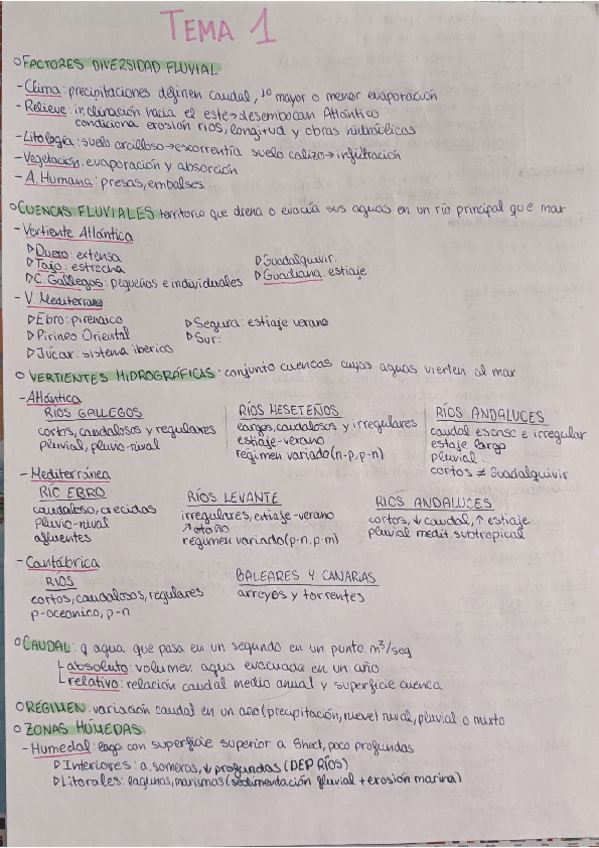 TEMA 1
○ FACTORES DIVERSIDAD FLUVIAL
- Clima: precipitaciones definen caudal, tº mayor o menor evaporación
- Relieve: inclinación hacia el este → desembocan Atlántico
condiciona erosión ríos, longitud y obras hidráulicas
- Litología: suelo arcilloso → escorrentía suelo calizo → infiltración
- Vegetación: evaporación y absorción
- A. Humana: presas, embalses
○ CUENCAS FLUVIALES territorio que drena o evacúa sus aguas en un río principal que mar
- Vertiente Atlántica
▷ Duero: extensa
▷ Tajo: estrecha
▷ C. Gallegos: pequeños e individuales
▷ Guadalquivir
▷ Guadiana: estiaje
- V. Mediterránea
▷ Ebro: pirenaico
▷ Pirineo Oriental
▷ Júcar: sistema ibérico
▷ Segura: estiaje verano
▷ Sur:
○ VERTIENTES HIDROGRÁFICAS: conjunto cuencas cuyas aguas vierten al mar
- Atlántica
RÍOS GALLEGOS
cortos, caudalosos y regulares
pluvial, pluvio-nival
RÍOS MESETEÑOS
largos, caudalosos y irregulares
estiaje-verano
régimen variado (n-p, p-n)
RÍOS ANDALUCES
caudal escaso e irregular
estiaje largo
pluvial
cortos ≠ Guadalquivir
- Mediterránea
RÍO EBRO
caudaloso, crecidas
pluvio-nival
afluentes
RÍOS LEVANTE
irregulares, estiaje-verano
↗ otoño
régimen variado (p-n, p-m)
RIOS ANDALUCES
cortos, ↓ caudal, ↑ estiaje
pluvial medit. subtropical
- Cantábrica
RÍOS
cortos, caudalosos, regulares
p-oceánico, p-n
BALEARES Y CANARIAS
arroyos y torrentes
○ CAUDAL: q agua que pasa en un segundo en un punto. m³/seg
absoluto: volumen agua evacuada en un año
relativo: relación caudal medio anual y superficie cuenca
○ RÉGIMEN: variación caudal en un año (precipitación, nieve) nival, pluvial o mixto
○ ZONAS HÚMEDAS
- Humedal: lago con superficie superior a 8hect, poco profundas
▷ Interiores: a. someras, ↓ profundas (DEP RÍOS)
▷ Litorales: lagunas, marismas (sedimentación fluvial + erosión marina)